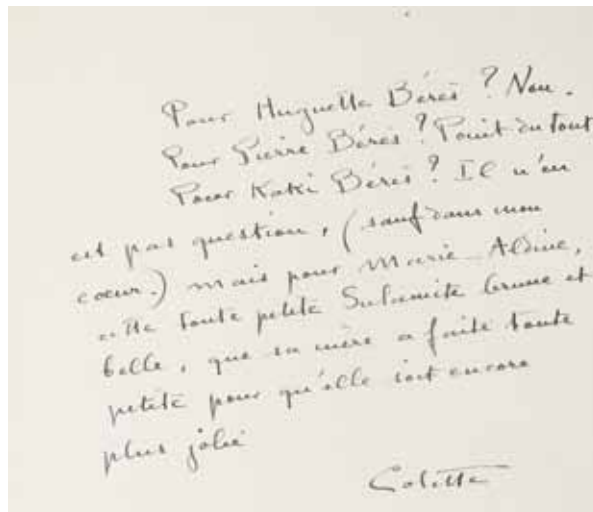 Pour Huguette Bérès ? Non.
Pour Pierre Bérès ? Point du tout
Pour Kaki Bérès ? Il n'en
est pas question, (sauf dans mon
cœur.) mais pour Marie-Aldine,
cette toute petite Sulamite brune et
belle, que sa mère a faite toute
petite pour qu'elle soit encore
plus jolie
Colette